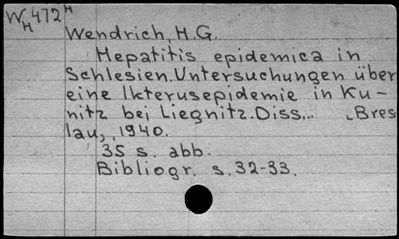 WH472H
Wendrich, H.G.
Hepatitis epidemica in
Schlesien. Untersuchungen über
eine Ikterusepidemie in Ku-
nitz bei Liegnitz. Diss... Bres
lau, 1940.
35 s. abb.
Bibliogr. s. 32-33.